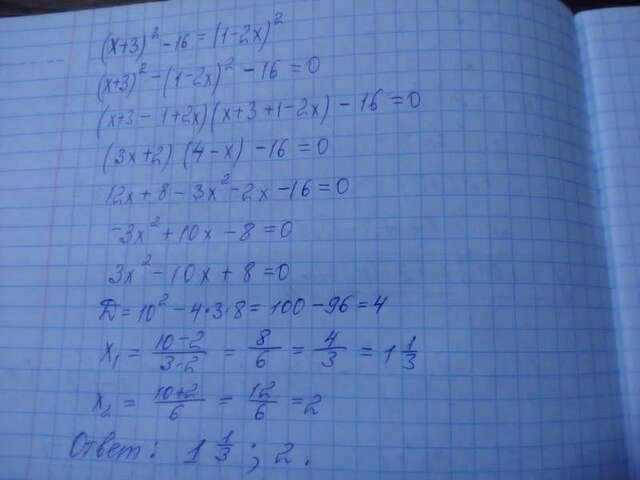 (x+3)² - 16 = (1-2x)²
(x+3)² - (1-2x)² - 16 = 0
(x+3 - 1+2x)(x+3+1-2x) - 16 = 0
(3x+2) (4-x) - 16 = 0
12x + 8 - 3x² - 2x - 16 = 0
-3x² + 10x - 8 = 0
3x² - 10x + 8 = 0
D = 10² - 4·3·8 = 100 - 96 = 4
x₁ = (10-2)/(3·2) = 8/6 = 4/3 = 1 1/3
x₂ = (10+2)/6 = 12/6 = 2
Ответ: 1 1/3 ; 2.